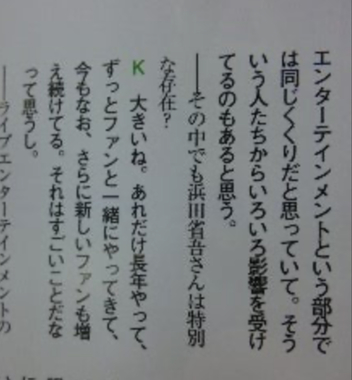 エンターテインメントという部分で
は同じくくりだと思っていて。そう
いう人たちからいろいろ影響を受け
てるのもあると思う。
――その中でも浜田省吾さんは特別
な存在？
K　大きいね。あれだけ長年やって、
ずっとファンと一緒にやってきて、
今もなお、さらに新しいファンも増
え続けてる。それはすごいことだな
って思うし。
――ライブエンターテインメントの